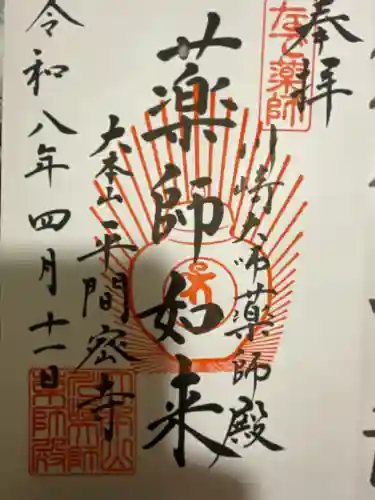 奉拝
なで薬師
川崎大師薬師殿
薬師如来
大本山平間密寺
令和八年四月十一日